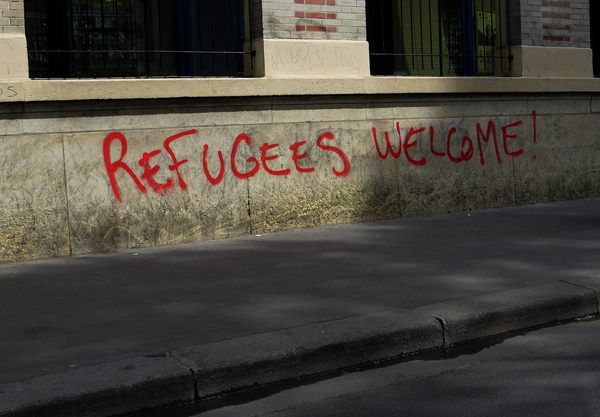 REFUGEES WELCOME!